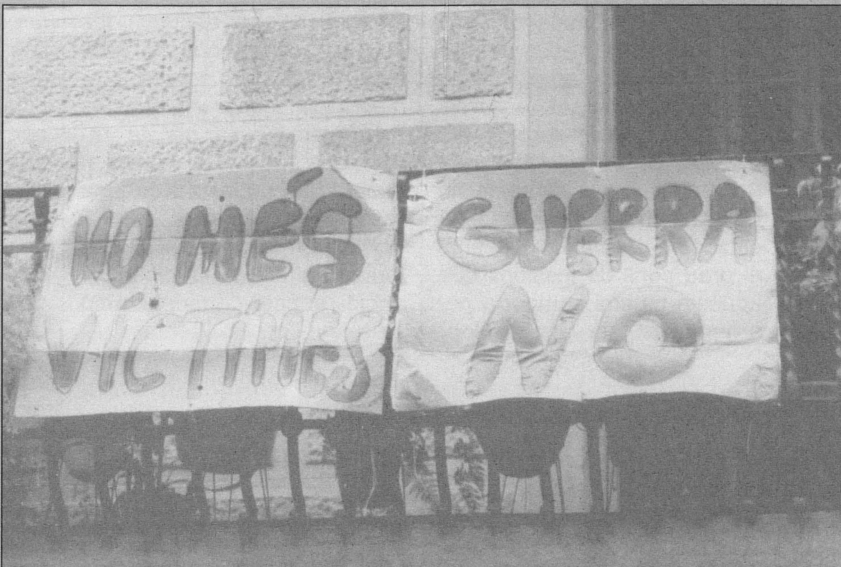 NO MÉS
VÍCTIMES
GUERRA
NO